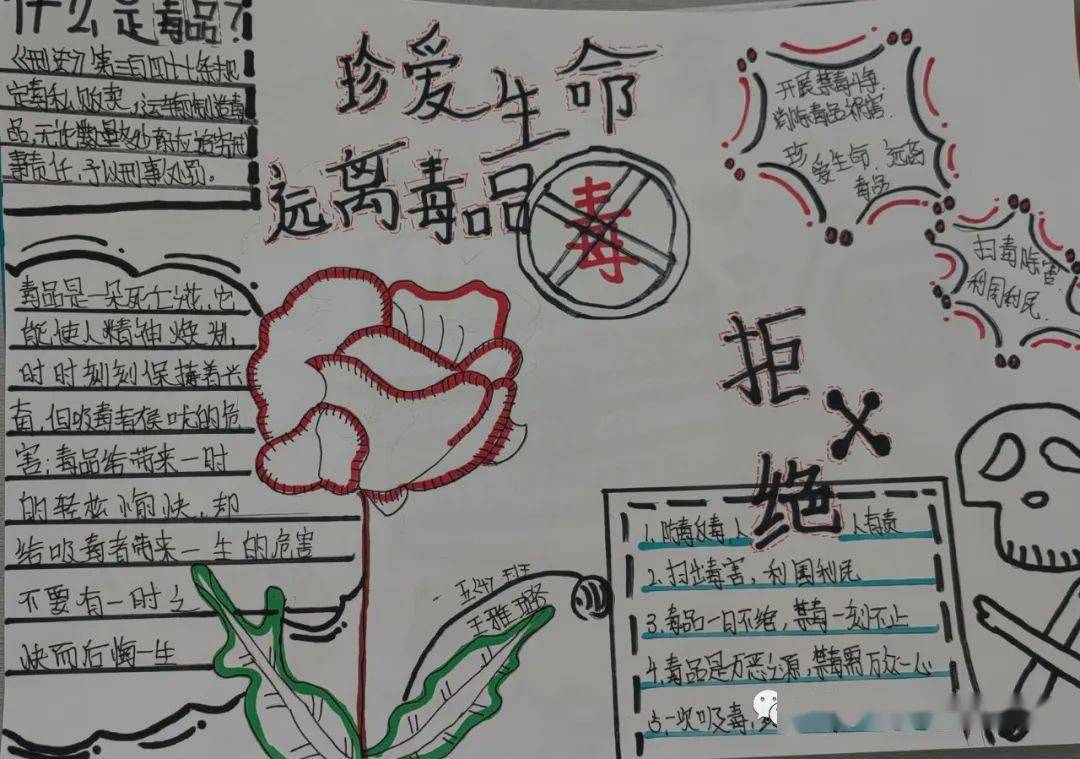 什么是毒品?
《刑法》第三百四十七条规
定毒私、贩卖,运输制造毒
品,无论数量多少都应追究刑
事责任,予以刑事处罚。
珍爱生命
远离毒品
毒
开展禁毒斗争,
消除毒品祸害.
珍爱生命 远离
毒品
扫毒除害,
利国利民.
毒品是一朵死亡花,它
能使人精神焕发,
时时刻刻保持着兴
奋,但吸毒者
的危
害:毒品给带来一时
的轻松愉快,却
给吸毒者带来一生的危害
不要有一时之
快而后悔一生
拒绝
1.防毒反毒,人人有责
2.扫出毒害,利国利民
3.毒品一日不绝,禁毒一刻不止
4.毒品是万恶之源,禁毒需万众一心
一次吸毒,
班
王雅